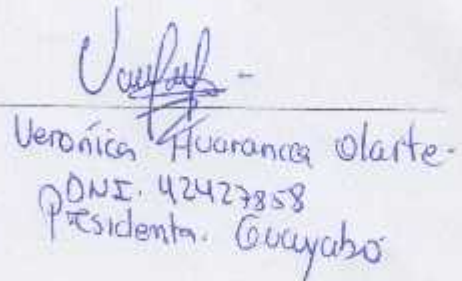 Verónica Huarancca Olarte.
DNI. 42427858
Presidenta. Guayabo